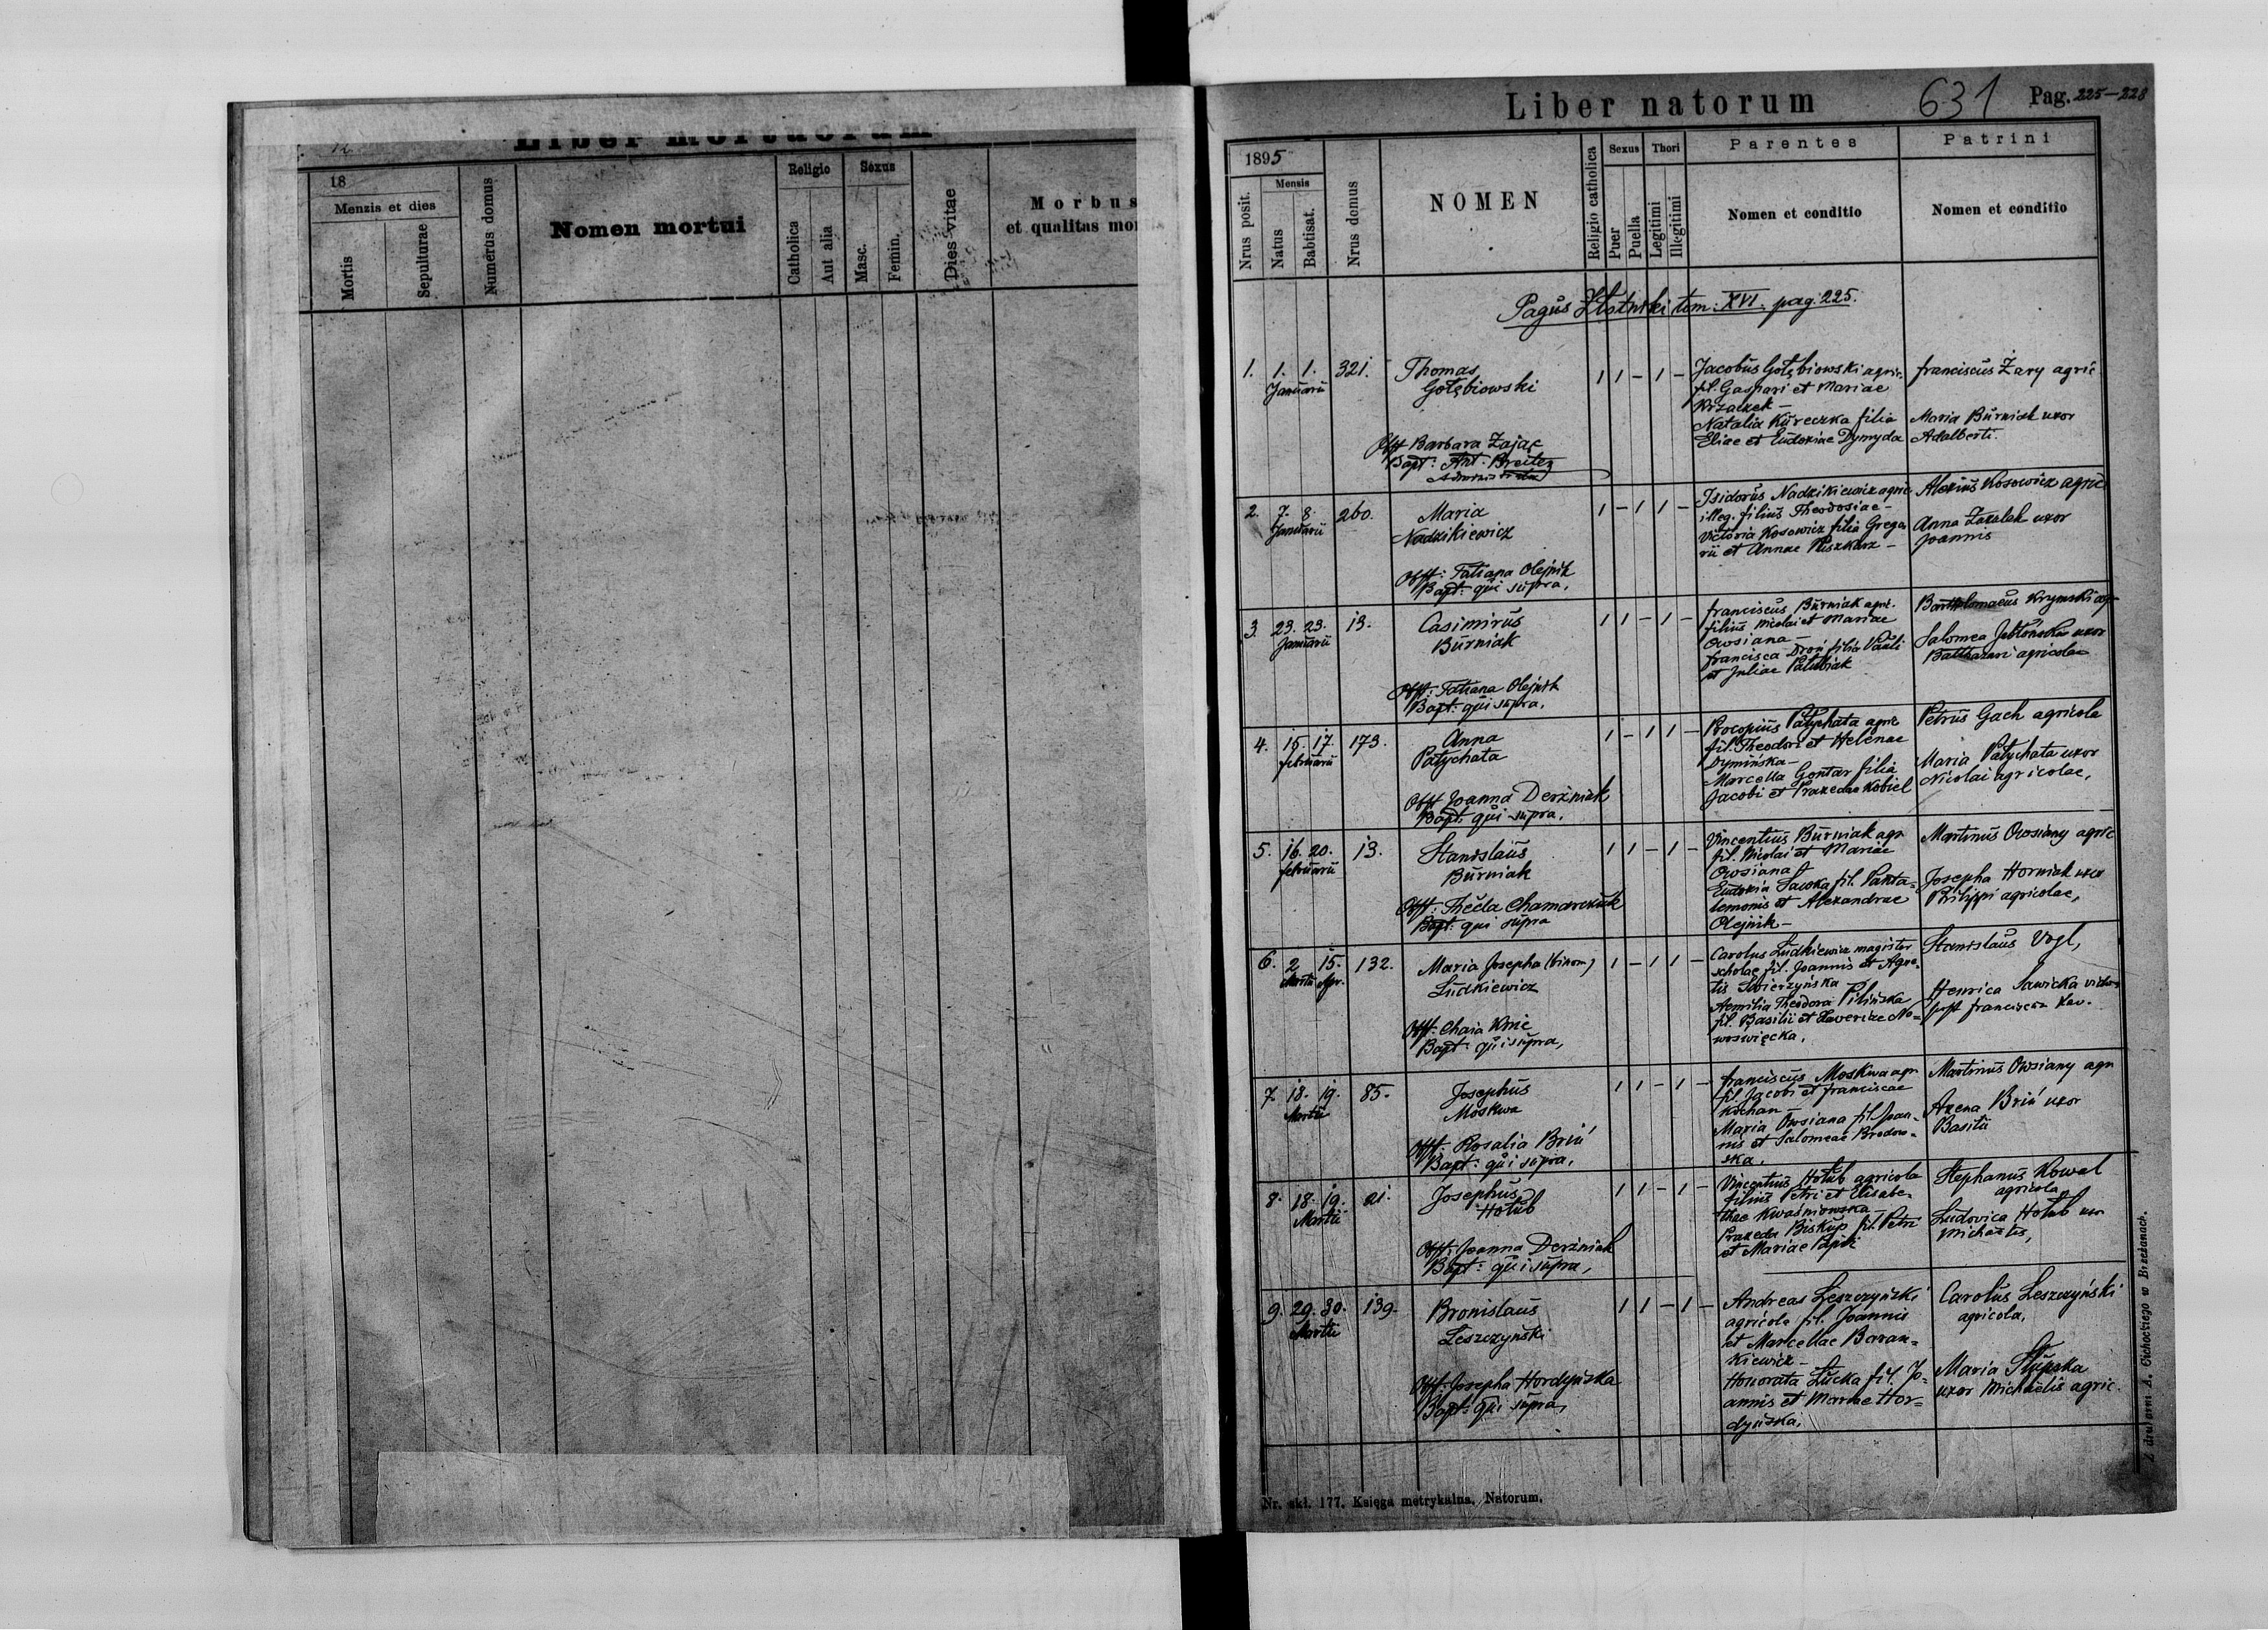 Liber mortuorum
18
Menzis et dies
Mortis
Sepulturae
Numerus domus
Nomen mortui
Religio
Catholica
Aut alia
Sexus
Masc.
Femin.
Dies vitae
Morbus
et qualitas mor
Liber natorum
631
Pag. 225-228
1895
Nrus posit.
Mensis
Natus
Babtisat.
Nrus domus
NOMEN
Religio catholica
Sexus
Puer
Puella
Thori
Legitimi
Illegitimi
Parentes
Nomen et conditio
Patrini
Nomen et conditio
Pagus Złotniki tom: XVI. pag. 225.
1. 1. 1. 321.
Januarii
Thomas
Gołębiowski
Obst Barbara Zając
Bapt: Ant. Breiter
Administrator
1 1 - 1 -
Jacobus Gołębiowski agric.
fil. Gaspari et Mariae
Krzaczek -
Natalia Kureczka filia
Eliae et Eudoxiae Dymyda
Franciscus Żary agric
Maria Burniak uxor
Adalberti.
2. 7. 8. 260.
Januarii
Maria
Nadzikiewicz
Obst: Tatiana Olejnik
Bapt: qui supra,
1 - 1 1 -
Isidorus Nadzikiewicz agric
illeg. filius Theodosiae -
Victoria Kosowicz filia Grego
rii et Annae
Alexius Kosowicz agric
Anna Zazulak uxor
Joannis
3. 23. 23. 13.
Januarii
Casimirus
Burniak
Obst: Tatiana Olejnik
Bapt: qui supra.
1 1 - 1 -
Franciscus Burniak agri.
filius Nicolai et Mariae
Owsiana -
Francisca Droń filia Pauli
et Juliae Palubiak
Bartholomaeus Krymski agr
Salomea Jabłońska uxor
Balthasari agricolae
4. 15. 17. 173.
Februarii
Anna
Patychata
Obst Joanna Derżniak
Bapt. qui supra.
1 - 1 1 -
Procopius Patychata agric
fil. Theodori et Helenae
Dymińska -
Marcella Gontar filia
Jacobi et Praxedae Kobiel
Petrus Gach agricola
Maria Patychata uxor
Nicolai agricolae,
5. 16. 20. 13.
Februarii
Stanislaus
Burniak
Obst: Thecla Chamarczuk
Bapt: qui supra
1 1 - 1 -
Vincentius Burniak agr
fil. Nicolai et Mariae
Owsiana
Eudoxia Sawka fil. Panta-
lemonis et Alexandrae
Olejnik -
Martinus Owsiany agric
Josepha Horniak uxor
Philippi agricolae,
6. 2 15. 132.
Martii Apr.
Maria Josepha (binom)
Ludkiewicz
Obst: Chaia
Bapt: qui supra,
1 - 1 1 -
Carolus Ludkiewicz magister
scholae fil. Joannis et Agne-
tis Swierzyńska
Aemilia Theodora Pilińska
fil. Basilii et Xaveriae No-
wosiecka.
Stanislaus Vogl,
Henrica Sawicka vidua
post Francisco Xav.
7. 18. 19. 85.
Martii
Josephus
Moskwa
Obst: Rosalia Briń
Bapt: qui supra,
1 1 - 1 -
Franciscus Moskwa agr
fil. Jacobi et Franciscae
Kochan
Maria Owsiana fil. Joan-
nis et Salomeae Brodow-
ska.
Martinus Owsiany agr
Axena Briń uxor
Basilii
8. 18. 19. 21.
Martii
Josephus
Hołub
Obst: Joanna Derżniak
Bapt: qui supra,
1 1 - 1 -
Vincentius Hołub agricola
filius Petri et Elisabe-
thae Kwaśniowska -
Praxeda Biskup fil. Petri
et Mariae
Stephanus Kowal
agricola
Ludovica Hołub uxor
Michaelis,
9. 29. 30. 139.
Martii
Bronislaus
Leszczyński
Obst: Josepha Hordyńska
Bapt: qui supra,
1 1 - 1 -
Andreas Leszczyński
agricola fil. Joannis
et Marcellae Baran-
kiewicz -
Honorata Łucka fil. Jo-
annis et Mariae Hor-
dyńska.
Carolus Leszczyński
agricola,
Maria Słupska
uxor Michaelis agric.
Nr. skł. 177. Księga metrykalna. Natorum.
Z drukarni A. Cichockiego w Brzeżanach.